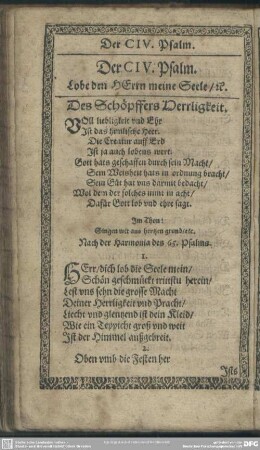 Der CIV. Psalm.
Der CIV. Psalm.
Lobe den HErrn meine Seele/ ꝛc.
Des Schöpffers Herrligkeit.
VOll liebligkeit vnd Ehr
Ist das himlische Heer.
Die Creatur auff Erd
Ist ja auch lobens wert.
Gott hats geschaffen durch sein Macht/
Sein Weisheit hats in ordnung bracht/
Sein Güt hat vns darmit bedacht/
Wol dem der solches nime in acht/
Dafür Gott lob vnd ehre sagt.
Im Thon:
Singen wir aus hertzen grund/etc.
Nach der Harmonia des 65. Psalms.
1.
HErr/dich lob die Seele mein/
Schön geschmückt trittstu herein/
Lest vns sehn die grosse Macht
Deiner Herrligkeit vnd Pracht/
Liecht vnd glentzend ist dein Kleid/
Wie ein Teppicht groß vnd weit
Ist der Himmel außgebreit.
2.
Oben vmb die Festen her
Ists
DFG